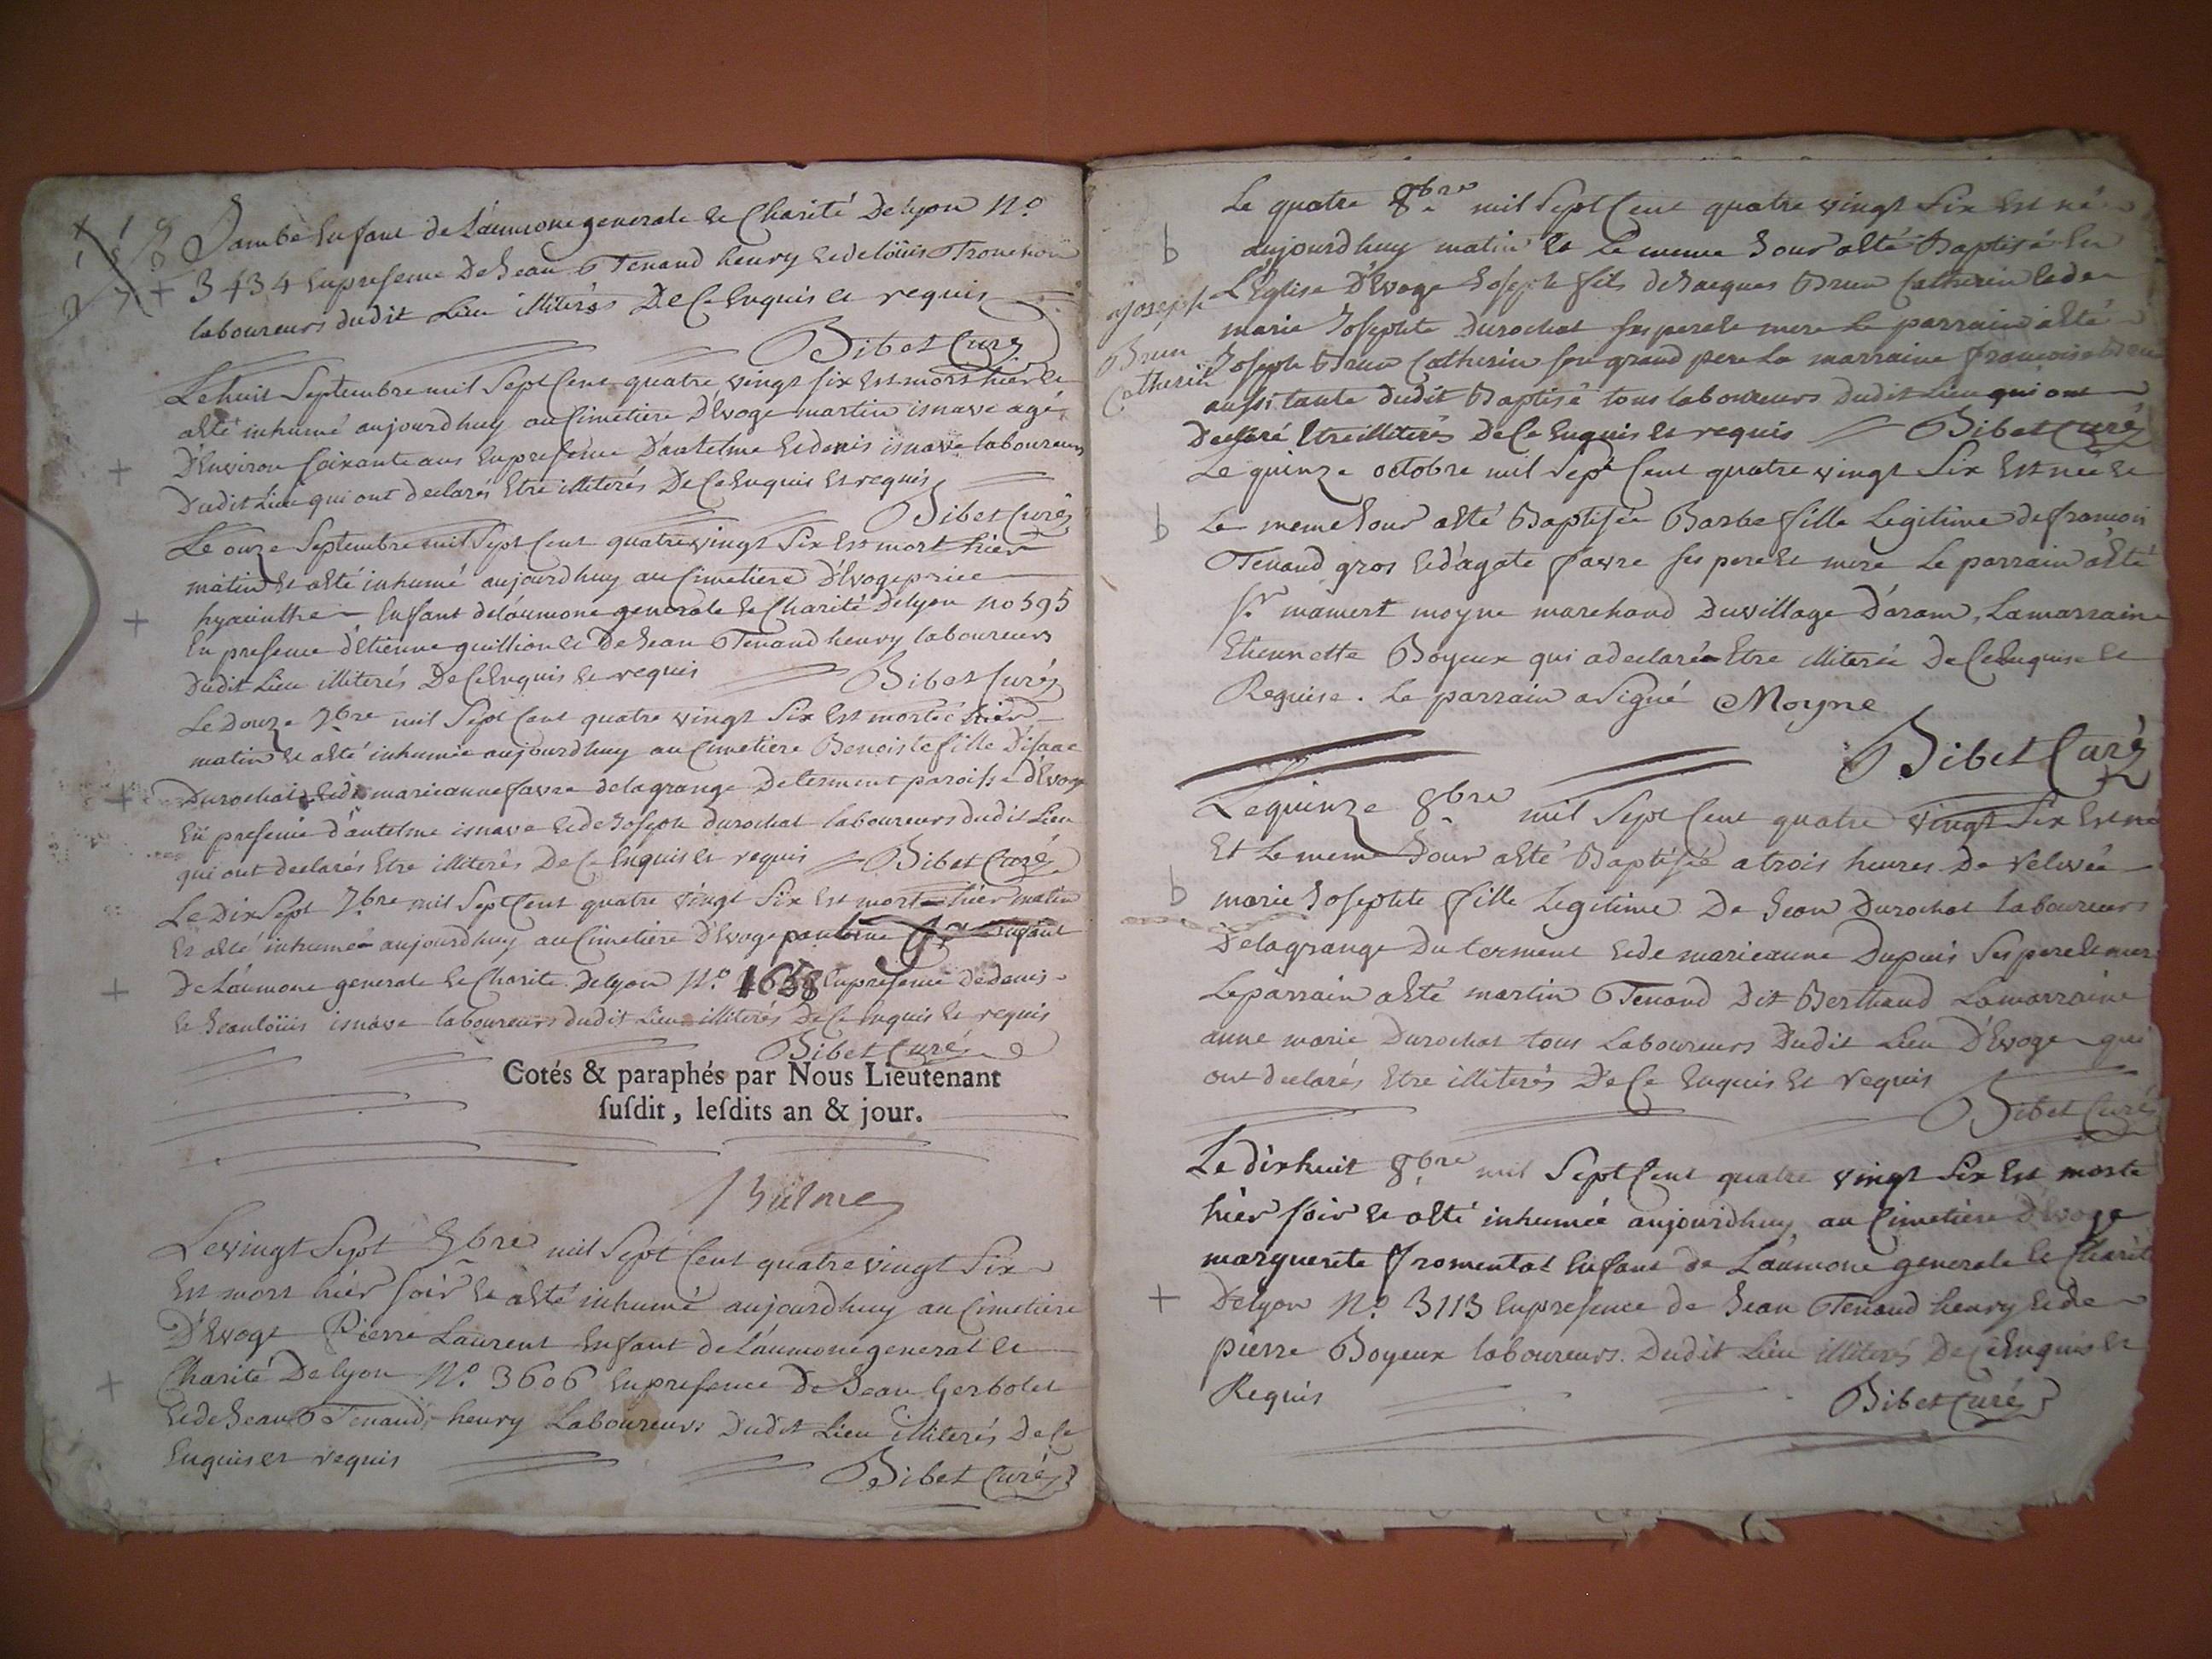 Jambe Enfant de Láumone generale et Charité De lyon N.o
3434 En presence De Jean Tenand henry et de loüis Tronchon
laboureurs dudit Lieu illiterés De Ce Enquis et requis
Bibet Curé
Le huit Septembre mil Sept Cent quatre vingt six Est mort hier et
aété inhumé aujourdhuy au Cimetiere D'Evoge martin isnave agé
D'Environ soixante ans En presence D'antelme et denis isnave laboureurs
Dudit Lieu qui ont declarés Etre illiterés De Ce Enquis et requis
Bibet Curé
Le onze Septembre mil Sept Cent quatre vingt Six Est mort hier
matin et aété inhumé aujourdhuy au Cimetiere D'Evoge price
hyacinthe Enfant de láumone generale et Charité De lyon no 595
En presence d'Etienne guillion et De Jean Tenand henry laboureurs
Dudit Lieu illiterés De Ce Enquis et requis Bibet Curé
Le Douze 7bre mil Sept Cent quatre vingt Six Est morte hier
matin et aété inhumée aujourdhuy au Cimetiere Benoiste fille D'isaac
Durochat et de marieanne favre de lagrange De terment paroisse d'Evoge
En presence d'antelme isnave et de Joseph durochat laboureurs dudit Lieu
qui ont declarés Etre illiterés De Ce Enquis et requis Bibet Curé
Le Dix Sept 7bre mil Sept Cent quatre vingt Six Est morte hier matin
Et aété inhumée aujourdhuy au Cimetiere D'Evoge Enfant
De Láumone generale et Charité De lyon N.o 1658 En presence de denis
et Jean loüis isnave laboureurs dudit Lieu illiterés De Ce Enquis et requis
Bibet Curé
Cotés & paraphés par Nous Lieutenant
ſuſdit, leſdits an & jour.
Le vingt Sept 7bre mil Sept Cent quatre vingt Six
Est mort hier soir et aété inhumé aujourdhuy au Cimetiere
D'Evoge Pierre Laurent Enfant de Láumone general et
Charité De lyon N.o 3606 En presence De Jean Gerbolet
et de Jean Tenand henry Laboureurs Dudit Lieu illiterés De Ce
Enquis et requis Bibet Curé
Le quatre 8bre mil Sept Cent quatre vingt Six Est né
aujourdhuy matin et Le meme Jour aété Baptisé En
b
L'Eglise D'Evoge Joseph fils de Jacques Brun Catherin et de
Joseph
marie Josephte Durochat ses pere et mere Le parrain aété
Brun
Joseph Brun Catherin son grand pere La marraine francoise Brun
Catherin
aussi tante dudit Baptisé tous laboureurs dudit Lieu qui ont
Declaré Etre illiterés De Ce Enquis et requis Bibet Curé
Le quinze octobre mil Sept Cent quatre vingt Six Est née et
b
Le meme Jour aété Baptisée Barbe fille Legitime de francois
Tenand gros et d'agate favre ses pere et mere Le parrain aété
s.r mamert moyne marchand Du village D'aram, La marraine
Etiennette Boyeux qui a declarée Etre illiterée De Ce Enquise et
Requise. Le parrain a Signé Moyne
Bibet Curé
Le quinze 8bre mil Sept Cent quatre vingt Six Est née
Et Le meme Jour aété Baptisée a trois heures De relevée
b
marie Josephte fille Legitime De Jean Durochat laboureurs
De lagrange Du terment et de marieanne Dupuis Ses pere et mere
Le parrain aété martin Tenand Dit Berthaud La marraine
anne marie Durochat tous Laboureurs Dudit Lieu D'Evoge qui
ont declarés Etre illiterés De Ce Enquis Et requis
Bibet Curé
Le dixhuit 8bre mil Sept Cent quatre vingt Six Est morte
hier soir et aété inhumée aujourdhuy au Cimetiere D'Evoge
marguerite fromentot Enfant de Láumone generale et Charité
De lyon N.o 3113 En presence de Jean Tenand henry et de
pierre Boyeux laboureurs Dudit Lieu illiterés De Ce Enquis et
Requis Bibet Curé